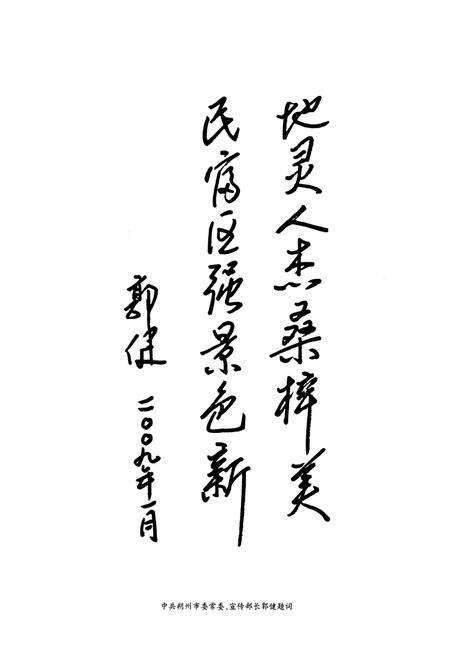 地灵人杰桑梓美
民富区强景色新
郭健
二〇〇九年一月
中共朔州市委常委、宣传部长郭健题词